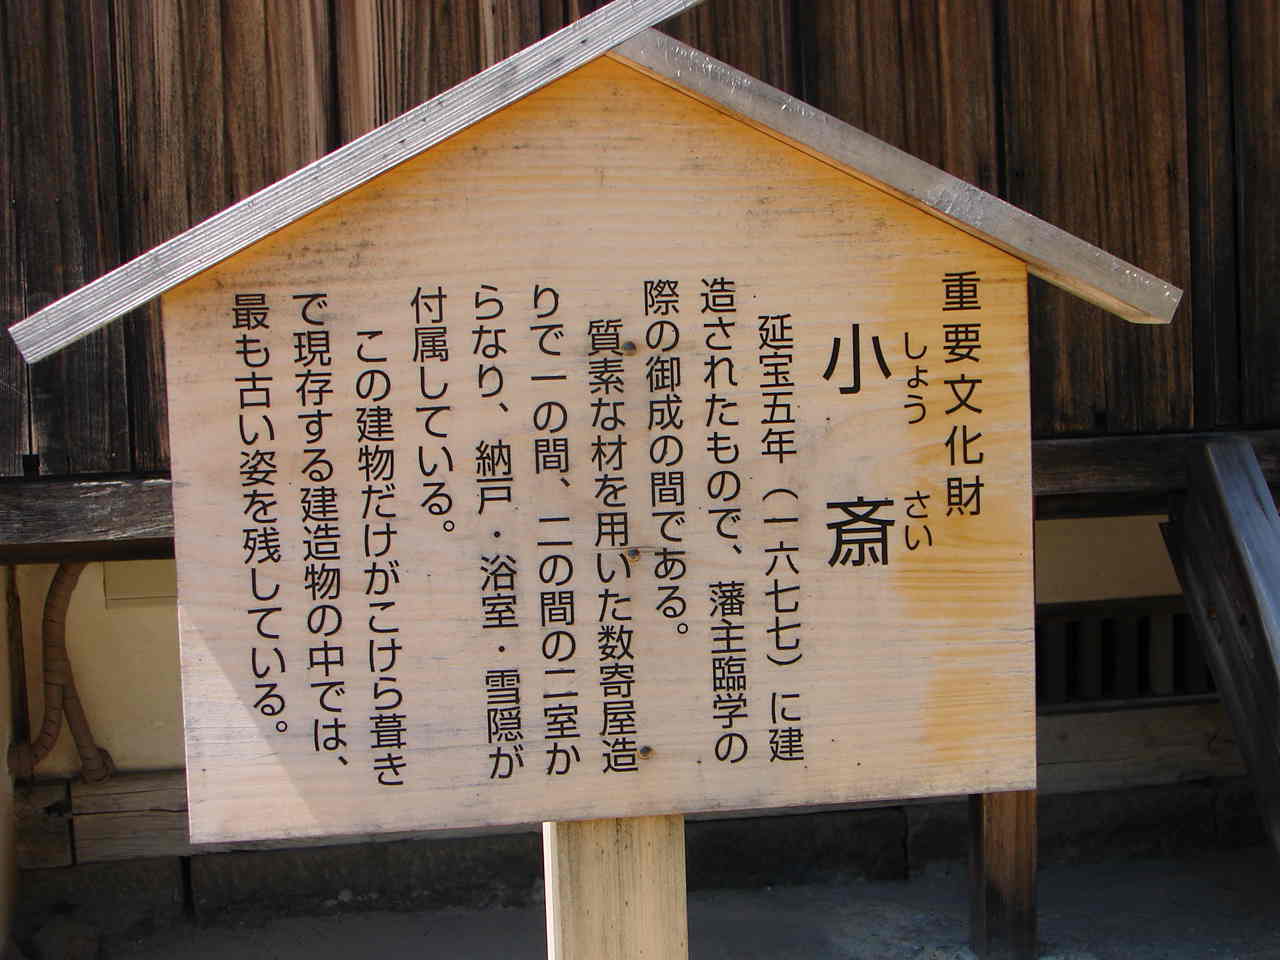 重要文化財
しょう さい
小斎
延宝五年（一六七七）に建
造されたもので、藩主臨学の
際の御成の間である。
質素な材を用いた数寄屋造
りで一の間、二の間の二室か
らなり、納戸・浴室・雪隠が
付属している。
この建物だけがこけら葺き
で現存する建造物の中では、
最も古い姿を残している。